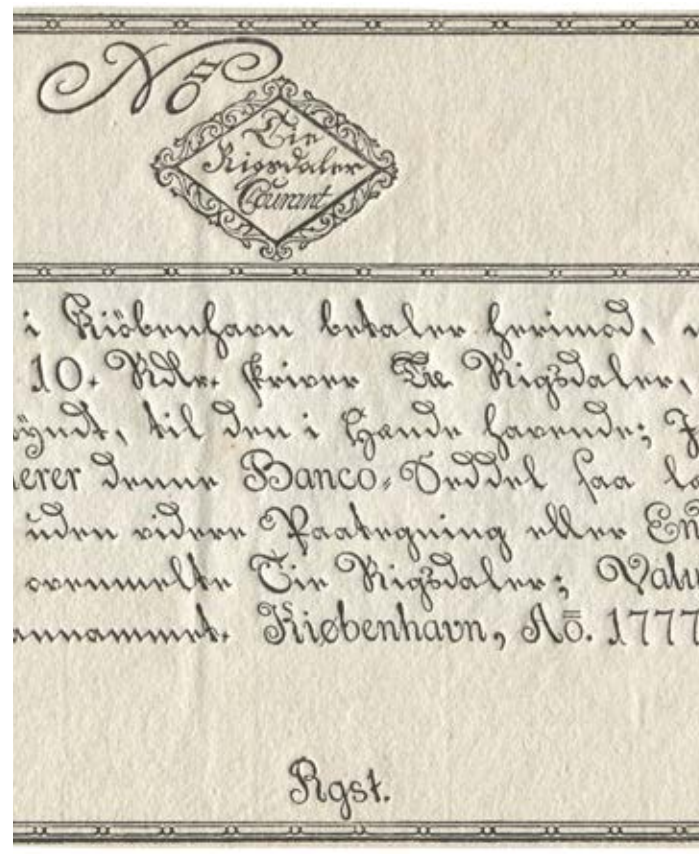 No
Tie
Rigsdaler
Courant
i Kiöbenhavn betaler herimod,
10. Rdlr. skriver Tie Rigsdaler,
til den i Hænde havende;
denne Banco-Seddel saa
uden videre Paategning eller En
ovenmelte Tie Rigsdaler; Valu
annammet. Kiøbenhavn, Aō. 1777
Rgst.